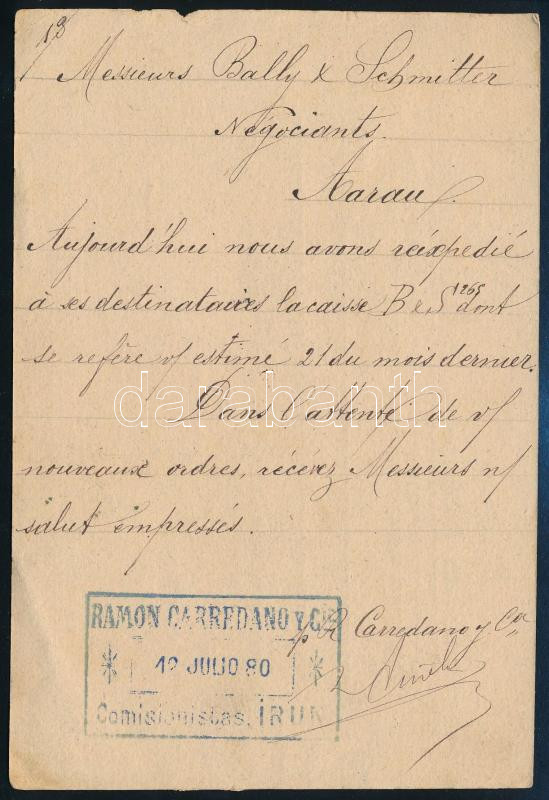 Messieurs Bally & Schmitter
Négociants.
Aarau.
Aujourd'hui nous avons réixpedié
à ses destinataires la caisse B & S 1265 dont
se refère v/ estimé 21 du mois dernier.
Dans l'attente de v/
nouveaux ordres, récévez Messieurs n/
salut empressés.
p. R Carredano y Cia
RAMON CARREDANO Y Cia
12 JULIO 80
Comisionistas, IRUN
darabanth